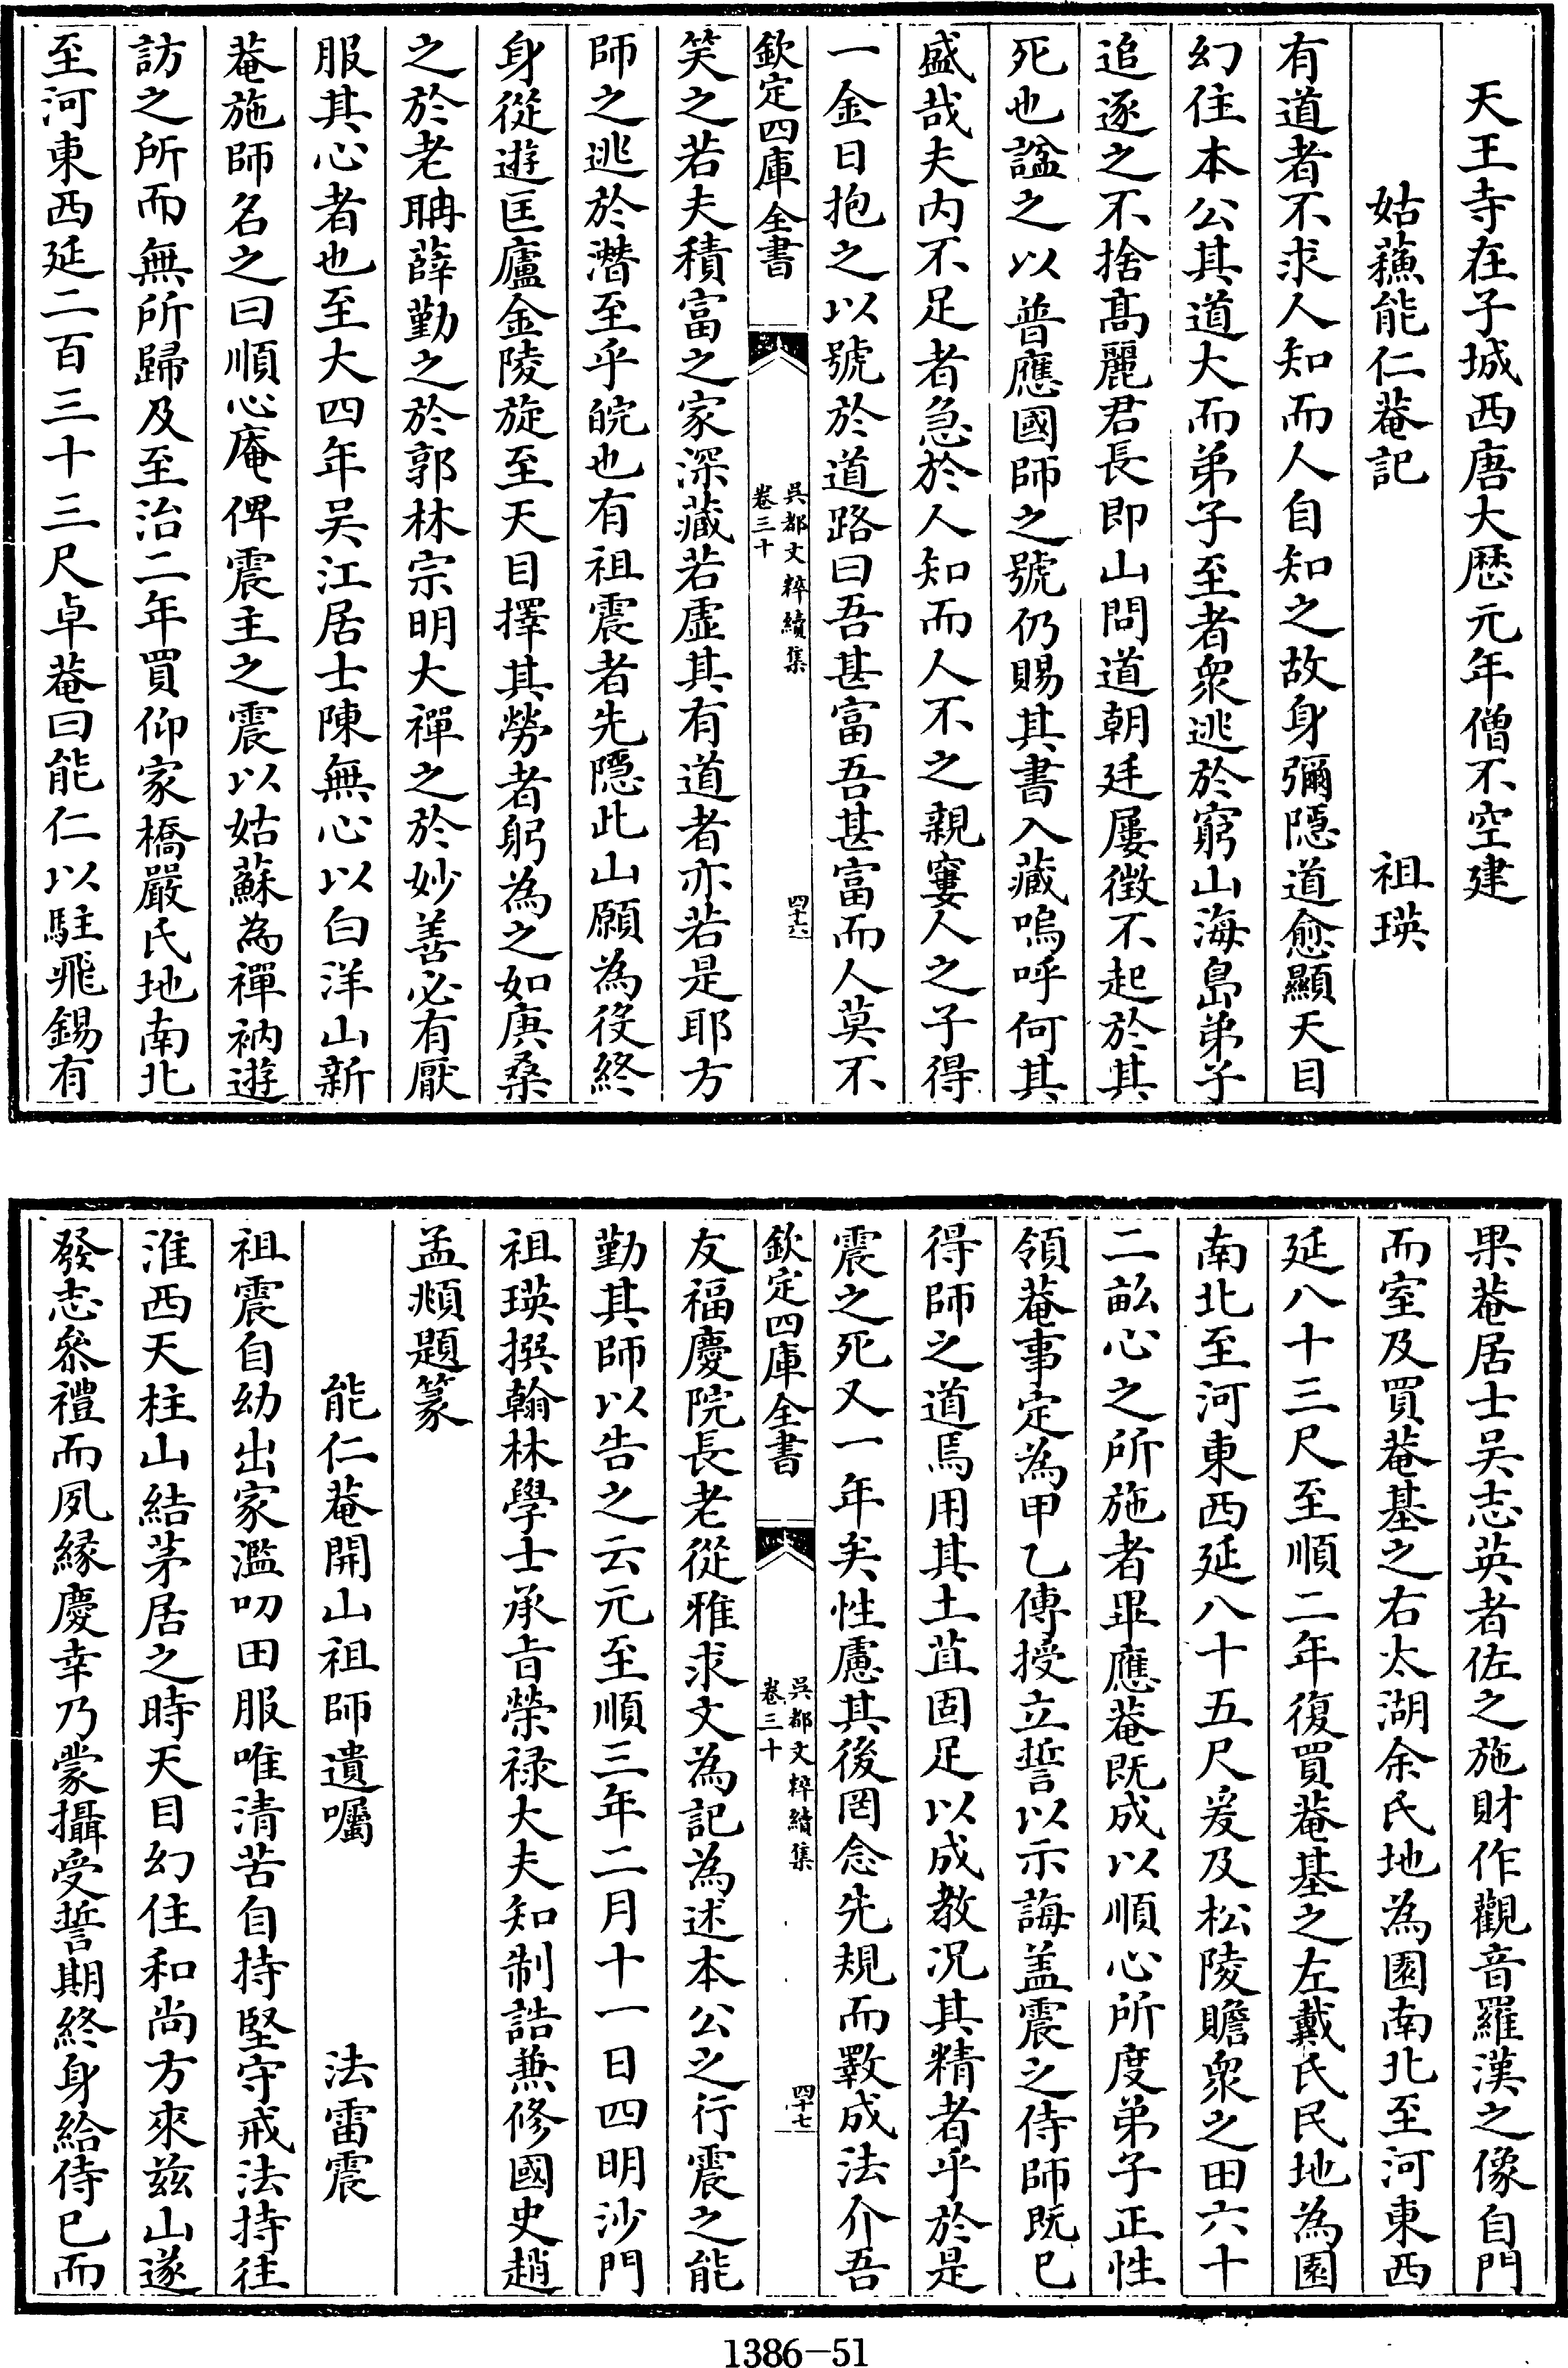 天王寺在子城西唐大歴元年僧不空建
姑蘓能仁菴記　祖瑛
有道者不求人知而人自知之故身彌隠道愈顯天目
幻住本公其道大而弟子至者衆逃於窮山海島弟子
追逐之不捨髙麗君長即山問道朝廷屢徴不起於其
死也諡之以普應國師之號仍賜其書入藏嗚呼何其
盛哉夫内不足者急於人知而人不之親窶人之子得
一金日抱之以號於道路曰吾甚富吾甚富而人莫不
欽定四庫全書　吳都文粹續集　卷三十　四十六
笑之若夫積富之家深藏若虛其有道者亦若是耶方
師之逃於濳至乎皖也有祖震者先隠此山願為役終
身從遊匡廬金陵旋至天目擇其勞者躬為之如庚桑
之於老聃薛勤之於郭林宗明大禪之於妙善必有厭
服其心者也至大四年吴江居士陳無心以白洋山新
菴施師名之曰順心庵俾震主之震以姑蘇為禪衲遊
訪之所而無所歸及至治二年買仰家橋嚴氏地南北
至河東西延二百三十三尺卓菴曰能仁以駐飛錫有
果菴居士吴志英者佐之施財作觀音羅漢之像自門
而室及買菴基之右太湖余氏地為園南北至河東西
延八十三尺至順二年復買菴基之左戴氏民地為園
南北至河東西延八十五尺爰及松陵贍衆之田六十
二畝心之所施者畢應菴既成以順心所度弟子正性
領菴事定為甲乙傳授立誓以示誨盖震之侍師既已
得師之道焉用其土苴固足以成教况其精者乎於是
震之死又一年矣性慮其後罔念先規而斁成法介吾
欽定四庫全書　吳都文粹續集　卷三十　四十七
友福慶院長老從雅求文為記為述本公之行震之能
勤其師以告之云元至順三年二月十一日四明沙門
祖瑛撰翰林學士承旨榮禄大夫知制誥兼修國史趙
孟頫題篆
能仁菴開山祖師遺囑　法雷震
祖震自幼出家濫叨田服唯清苦自持堅守戒法持往
淮西天柱山結茅居之時天目幻住和尚方來兹山遂
發志叅禮而夙縁慶幸乃蒙攝受誓期終身給侍已而
1386－51